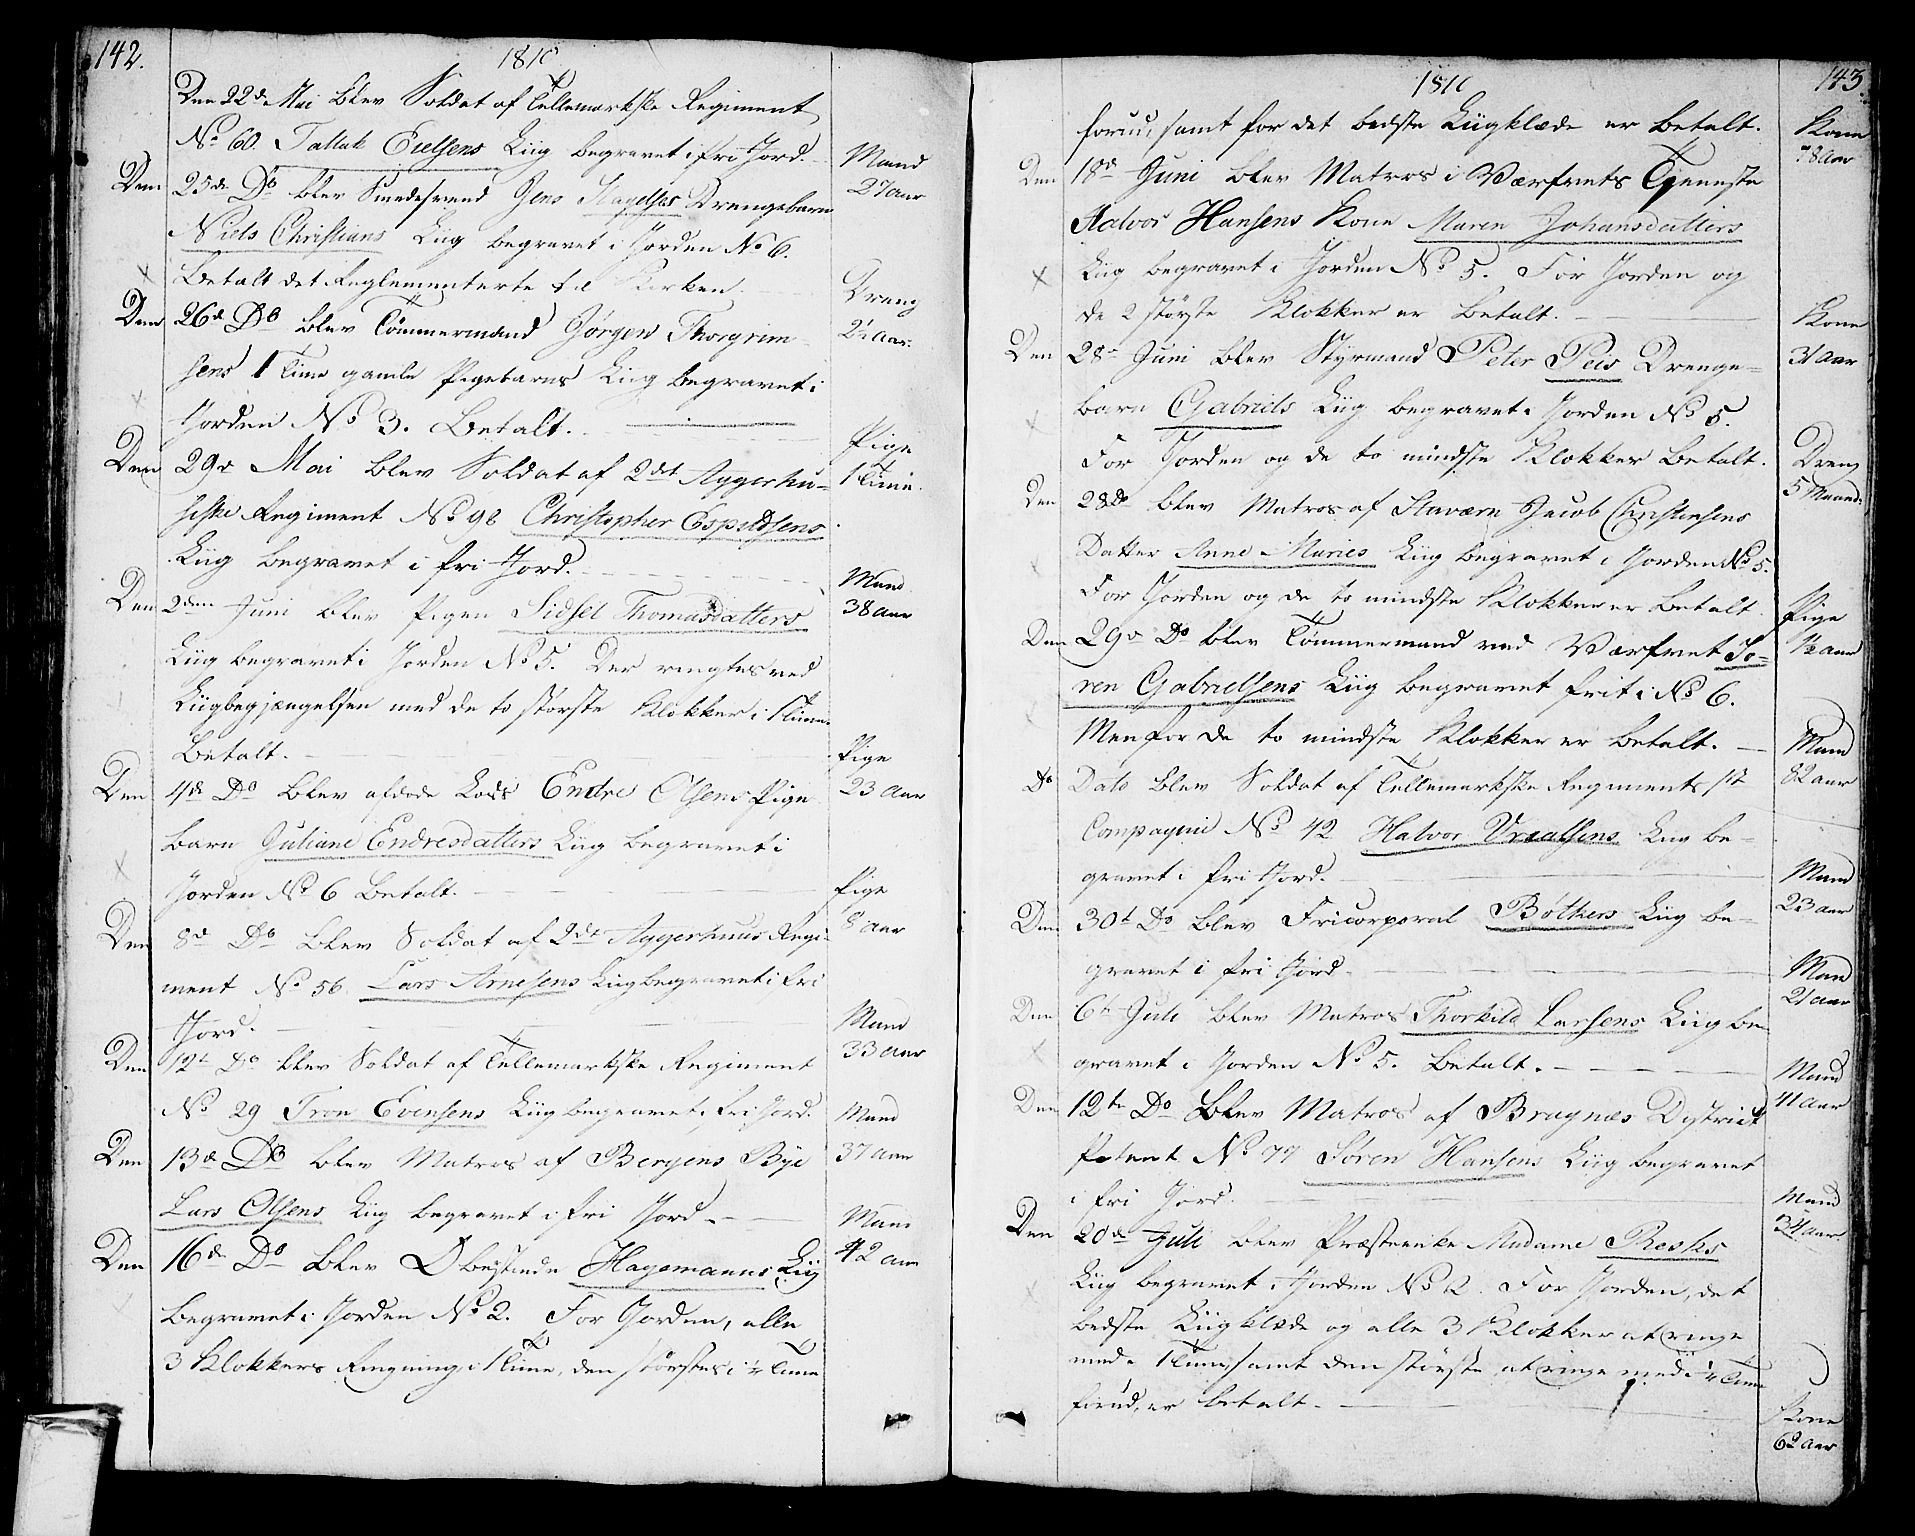 142.
1810
Den 22d Mai blev Soldat af Tellemarkske Regiment
No 60. Tallak Eielsens Liig begravet i fri Jord.
Mand
27 Aar
Den 25de Do blev Smedesvend Jens Drengebarn
Niels Christians Liig begravet i Jorden No 6.
Betalt det Reglementerte til Kirken.
Dreng
2½ Aar.
Den 26d Do blev Tömmermand Jørgen Thorgrim-
sens 1 Time gamle Pigebarns Liig begravet i
Jorden No 3. Betalt.
Pige
1 Time.
Den 29d Mai blev Soldat af 2det Aggerhu-
siske Regiment No 98 Christopher Espeldsens
Liig begravet i fri Jord.
Mand
38 Aar
Den 2den Juni blev Pigen Sidsel Thomasdatters
Liig begravet i Jorden No 5. Der ringtes ved
Liigbegjængelsen med de to störste Klokker i 1 Time.
Betalt.
Pige
23 Aar
Den 4de Do blev afdøde Lods Endre Olsens Pige
barn Juliane Endresdatters Liig begravet i
Jorden No 6 Betalt.
Pige
8 Aar
Den 8d Do blev Soldat af 2det Aggerhuus Regi-
ment No 56. Lars Arnesens Liig begravet i fri
Jord.
Mand
33 Aar
Den 12t Do blev Soldat af Tellemarkske Regiment
No 29 Tron Evensens Liig begravet i fri Jord.
Mand
37 Aar
Den 13de Do blev Matros af Bergens Bye
Lars Olsens Liig begravet i fri Jord.
Mand
42 Aar
Den 16de Do blev Obristinde Hagemanns Liig
begravet i Jorden No 2. For Jorden, alle
3 Klokkers Ringning i 1 Time, den störstes i ½ Time
1810
143.
forud, samt for det bedste Liigklæde er betalt.
Kone
78 Aar
Den 18d Juni blev Matros i Værfvets Tjeneste
Halvor Hansens Kone Maren Johansdatters
Liig begravet i Jorden No 5. For Jorden og
de 2 störste Klokker er betalt.
Kone
31 Aar
Den 28 Juni blev Styrmand Peter Peis Drenge-
barn Gabriels Liig begravet i Jorden No 5.
For Jorden og de to mindste Klokker betalt.
Dreng
5 Maand.
Den 28de blev Matros af Staværn Jacob Christensens
Datter Anne Maries Liig begravet i Jorden No 5.
For Jorden og de to mindste Klokker er betalt
Pige
½ Aar
Den 29d Do blev Tömmermand ved Værfvet Sö-
ren Gabrielsens Liig begravet frit i No 6.
Men for de to mindste Klokker er betalt.
Mand
82 Aar
Do Dato blev Soldat af Tellemarkske Regiments 1st
Compagnie No 42 Halvor Vraalsens Liig be-
gravet i fri Jord.
Mand
23 Aar
Den 30t Do blev Fricorporal Böthers Liig be-
gravet i fri Jord.
Mand
21 Aar
Den 6te Juli blev Matros Thorkild Larsens Liig be
gravet i Jorden No 5. Betalt.
Mand
41 Aar
Den 12te Do blev Matros af Bragnæs District
Patent No 77 Sören Hansens Liig begravet
i fri Jord.
Mand
34 Aar
Den 20de Juli blev Præsteenke Madame Resks
Liig begravet i Jorden No 2. For Jorden, det
bedste Liigklæde og alle 3 Klokker at ringe
med i 1 Time, samt den störste at ringe med i ½ Time
forud, er betalt.
Kone
62 Aar